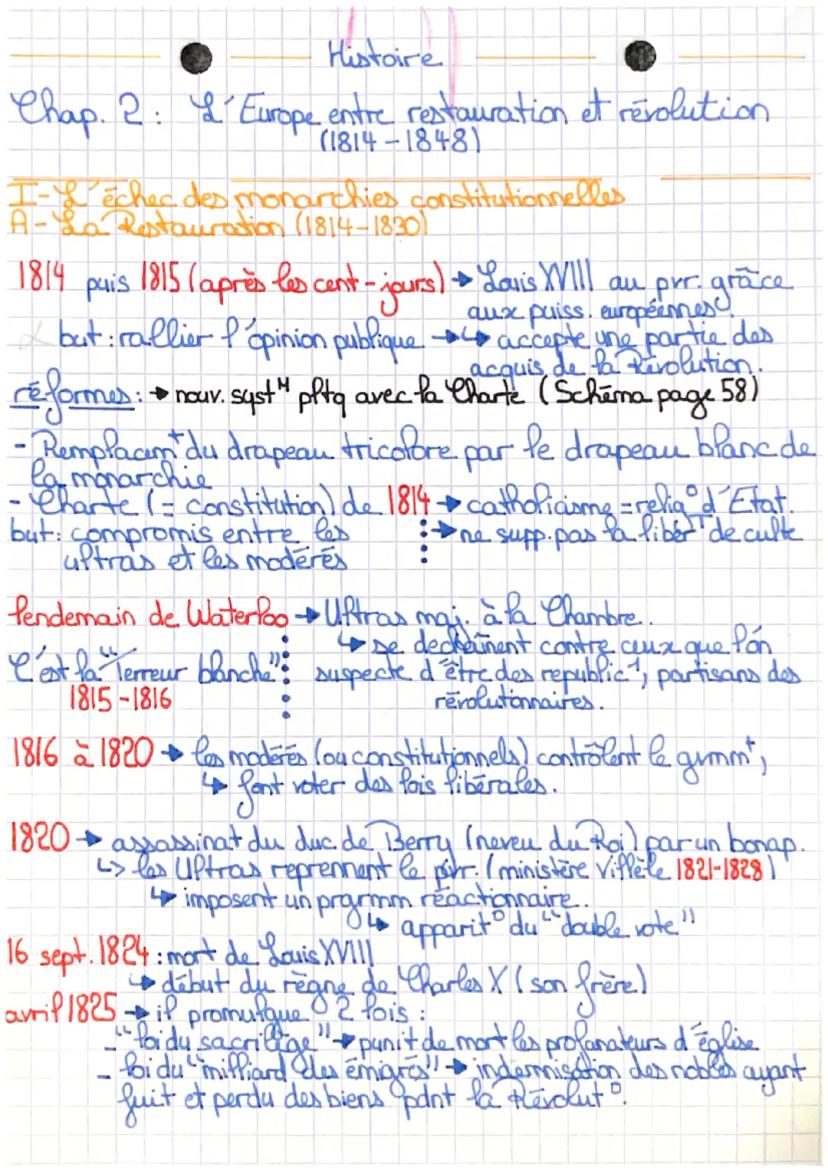 Histoire
Chap. 2 : L'Europe entre restauration et révolution
(1814-1848)
I- L'échec des monarchies constitutionnelles
A- La Restauration (1814-1830)
1814 puis 1815 (après les cent-jours) → Louis XVIII au pvr. grâce
aux puiss. européennes
but : rallier l'opinion publique →↳ accepte une partie des
acquis de la Révolution.
réformes : → nouv. systᴹ pltq avec la Charte (Schéma page 58)
- Remplacemt du drapeau tricolore par le drapeau blanc de
la monarchie
- Charte (= constitution) de 1814 → catholicisme = relig° d'Etat.
but : compromis entre les → ne supp. pas la liberT de culte
ultras et les modérés
lendemain de Waterloo → Ultras maj. à la Chambre.
↳ se dechaînent contre ceux que l'on
C'est la "Terreur blanche" : suspecte d'être des republic¹, partisans des
1815-1816 révolutionnaires.
1816 à 1820 → les modérés (ou constitutionnels) contrôlent le gvmmt,
↳ font voter des lois libérales.
1820 → assassinat du duc de Berry (neveu du Roi) par un bonap.
↳ les Ultras reprennent le pvr. (ministère Villèle 1821-1828)
↳ imposent un prgrmm réactionnaire.
↳ apparit° du "double vote"
16 sept. 1824 : mort de Louis XVIII
↳ début du règne de Charles X (son frère)
avril 1825 → il promulgue 2 lois :
- "loi du sacrilège" → punit de mort les profanateurs d'église
- loi du "milliard des émigrés" → indemnisation des nobles ayant
fuit et perdu des biens pdnt la Révolut°.